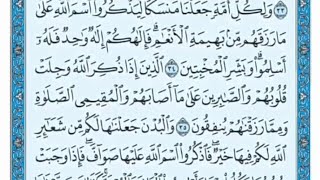 وَلِكُلِّ أُمَّةٍ جَعَلْنَا مَنسَكًا لِّيَذْكُرُوا۟ ٱسْمَ ٱللَّهِ عَلَىٰ
مَا رَزَقَهُم مِّنۢ بَهِيمَةِ ٱلْأَنْعَٰمِ ۗ فَإِلَٰهُكُمْ إِلَٰهٌ وَٰحِدٌ فَلَهُۥٓ
أَسْلِمُوا۟ ۗ وَبَشِّرِ ٱلْمُخْبِتِينَ ٣٤ ٱلَّذِينَ إِذَا ذُكِرَ ٱللَّهُ وَجِلَتْ
قُلُوبُهُمْ وَٱلصَّٰبِرِينَ عَلَىٰ مَآ أَصَابَهُمْ وَٱلْمُقِيمِى ٱلصَّلَوٰةِ
وَمِمَّا رَزَقْنَٰهُمْ يُنفِقُونَ ٣٥ وَٱلْبُدْنَ جَعَلْنَٰهَا لَكُم مِّن شَعَٰٓئِرِ
ٱللَّهِ لَكُمْ فِيهَا خَيْرٌ ۖ فَٱذْكُرُوا۟ ٱسْمَ ٱللَّهِ عَلَيْهَا صَوَآفَّ ۖ فَإِذَا وَجَبَتْ